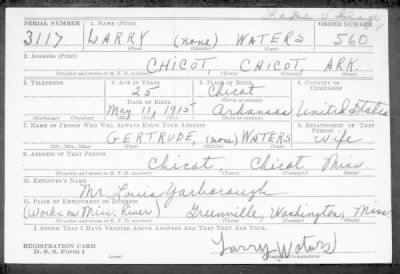 SERIAL NUMBER 1. NAME (Print) ORDER NUMBER
3117 LARRY (none) WATERS 560
(First) (Middle) (Last)
2. ADDRESS (Print)
CHICOT CHICOT ARK.
(Number and street or R. F. D. number) (Town) (County) (State)
3. TELEPHONE 4. AGE IN YEARS 5. PLACE OF BIRTH 6. COUNTRY OF CITIZENSHIP
25 Chicot
DATE OF BIRTH (Town or county)
May 11, 1915 Arkansas United States
(Exchange) (Number) (Mo.) (Day) (Yr.) (State or country)
7. NAME OF PERSON WHO WILL ALWAYS KNOW YOUR ADDRESS 8. RELATIONSHIP OF THAT PERSON
GERTRUDE, (none) WATERS Wife
(Mr., Mrs., Miss) (First) (Middle) (Last)
9. ADDRESS OF THAT PERSON
Chicot, Chicot Miss
(Number and street or R. F. D. number) (Town) (County) (State)
10. EMPLOYER'S NAME
Mr. Louis Yarborough
11. PLACE OF EMPLOYMENT OR BUSINESS
(Works on Miss. River) Greenville, Washington, Miss
(Number and street or R. F. D. number) (Town) (County) (State)
I AFFIRM THAT I HAVE VERIFIED ABOVE ANSWERS AND THAT THEY ARE TRUE.
REGISTRATION CARD
D. S. S. Form 1 (over) Larry Waters